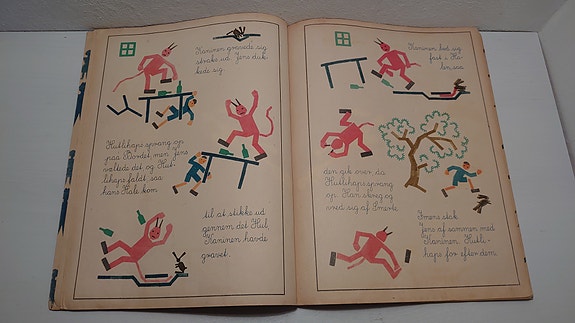 Kaninen gravede sig
straks ud. Jens duk-
kede sig.
Hutlihaps sprang op
paa Bordet, men Jens
væltede det og Hut-
lihaps faldt, saa
hans Hale kom
til at stikke ud
gennem det Hul,
Kaninen havde
gravet.
Kaninen bed sig
fast i Ha-
len, saa
den gik over, da
Hutlihaps sprang
op. Han skreg og
vred sig af Smerte.
Imens stak
Jens af sammen med
Kaninen. Hutli-
haps for efter dem.